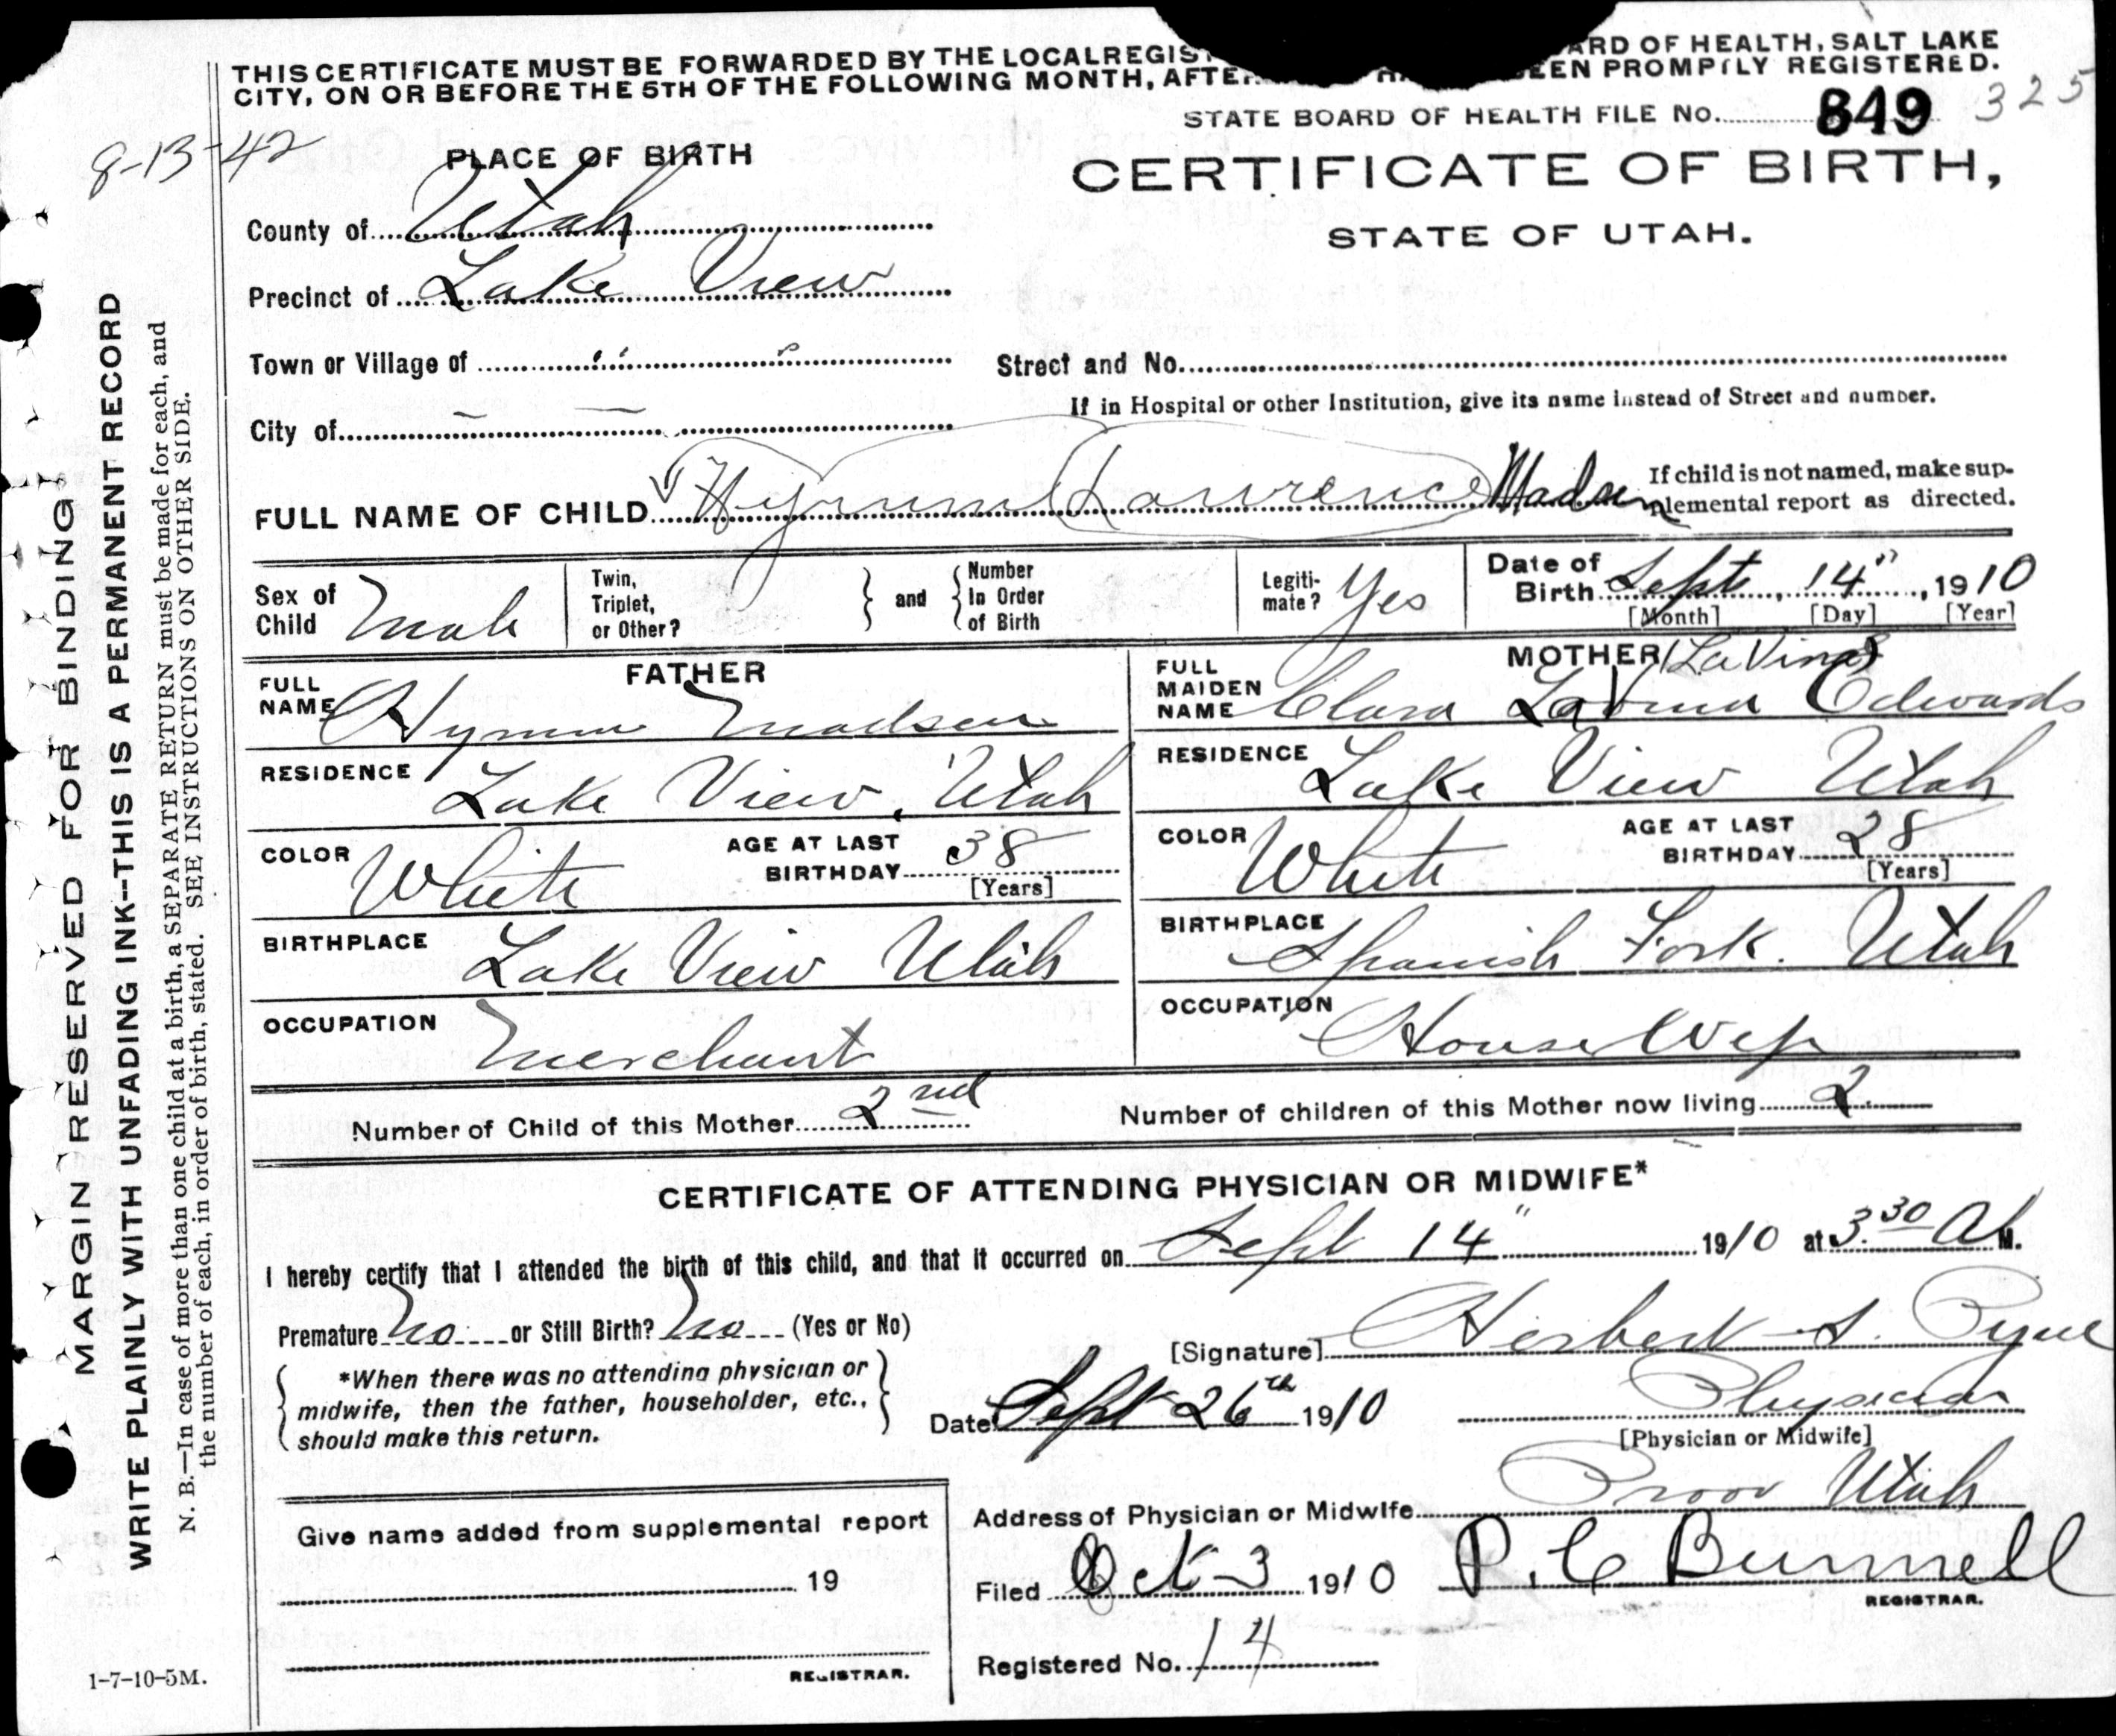 THIS CERTIFICATE MUST BE FORWARDED BY THE LOCAL REGIS ARD OF HEALTH, SALT LAKE
CITY, ON OR BEFORE THE 5TH OF THE FOLLOWING MONTH, AFTER HA EEN PROMPTLY REGISTERED.
STATE BOARD OF HEALTH FILE No. 849 325
8-13-42
PLACE OF BIRTH
CERTIFICATE OF BIRTH,
STATE OF UTAH.
County of Utah
Precinct of Lake View
Town or Village of " "
Street and No.
If in Hospital or other Institution, give its name instead of Street and number.
City of — —
FULL NAME OF CHILD Hymm (Lawrence) Madsen
If child is not named, make sup-
plemental report as directed.
Sex of Child Male
Twin, Triplet, or Other?
and
Number In Order of Birth
Legiti-mate? Yes
Date of Birth Sept, 14", 1910
[Month] [Day] [Year]
FATHER
FULL NAME Hymm Madsen
RESIDENCE Lake View, Utah
COLOR White AGE AT LAST BIRTHDAY 38
[Years]
BIRTHPLACE Lake View Utah
OCCUPATION Merchant
MOTHER (LaVina)
FULL MAIDEN NAME Clara LaVina Edwards
RESIDENCE Lake View Utah
COLOR White AGE AT LAST BIRTHDAY 28
[Years]
BIRTHPLACE Spanish Fork. Utah
OCCUPATION House Wife
Number of Child of this Mother 2nd Number of children of this Mother now living 2
CERTIFICATE OF ATTENDING PHYSICIAN OR MIDWIFE*
I hereby certify that I attended the birth of this child, and that it occurred on Sept 14" 1910 at 3.30 A M.
Premature No or Still Birth? No (Yes or No)
[Signature] Herbert S. Pyne
*When there was no attending physician or
midwife, then the father, householder, etc.,
should make this return.
Date Sept 26th 1910
Physician
[Physician or Midwife]
Address of Physician or Midwife Provo Utah
Give name added from supplemental report
19
REGISTRAR.
Filed Oct 3 1910 P. C Bunnell
REGISTRAR.
Registered No. 14
1-7-10-5M.
MARGIN RESERVED FOR BINDING
WRITE PLAINLY WITH UNFADING INK--THIS IS A PERMANENT RECORD
N. B.—In case of more than one child at a birth, a SEPARATE RETURN must be made for each, and
the number of each, in order of birth, stated. SEE INSTRUCTIONS ON OTHER SIDE.